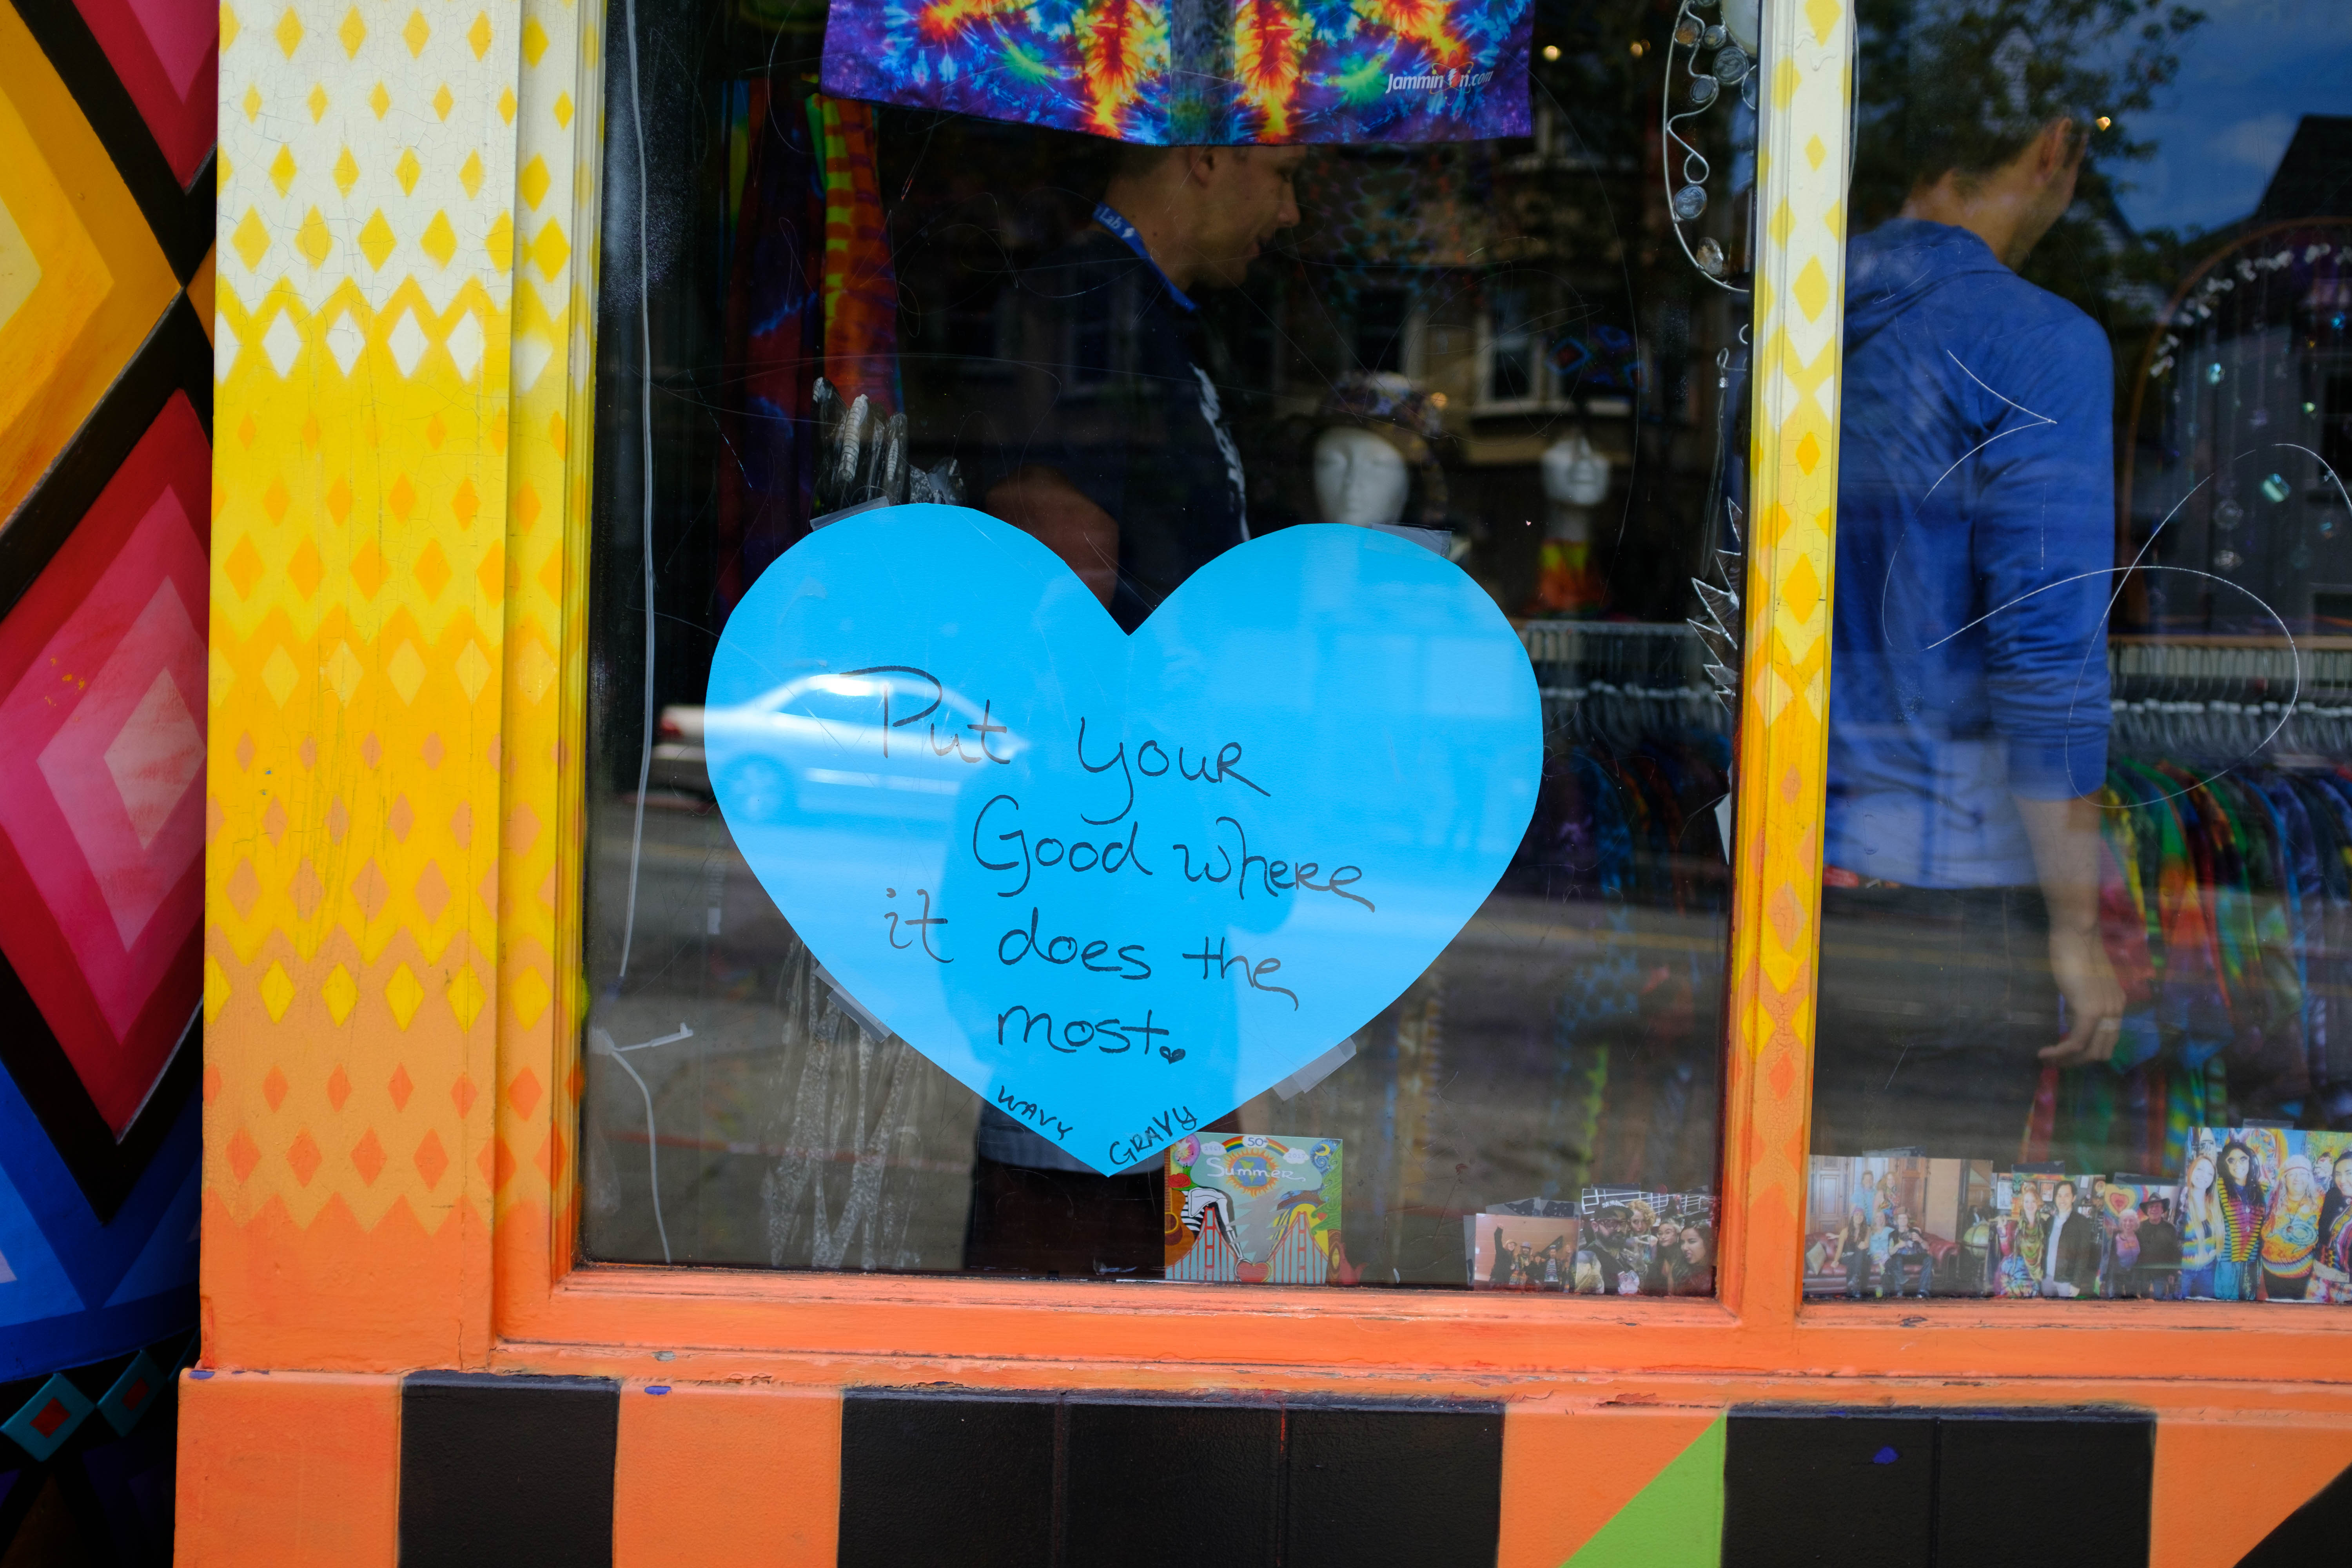 Jammin n.com
Lab
Put your
Good where
it does the
most.
WAVY GRAVY
50
Summer